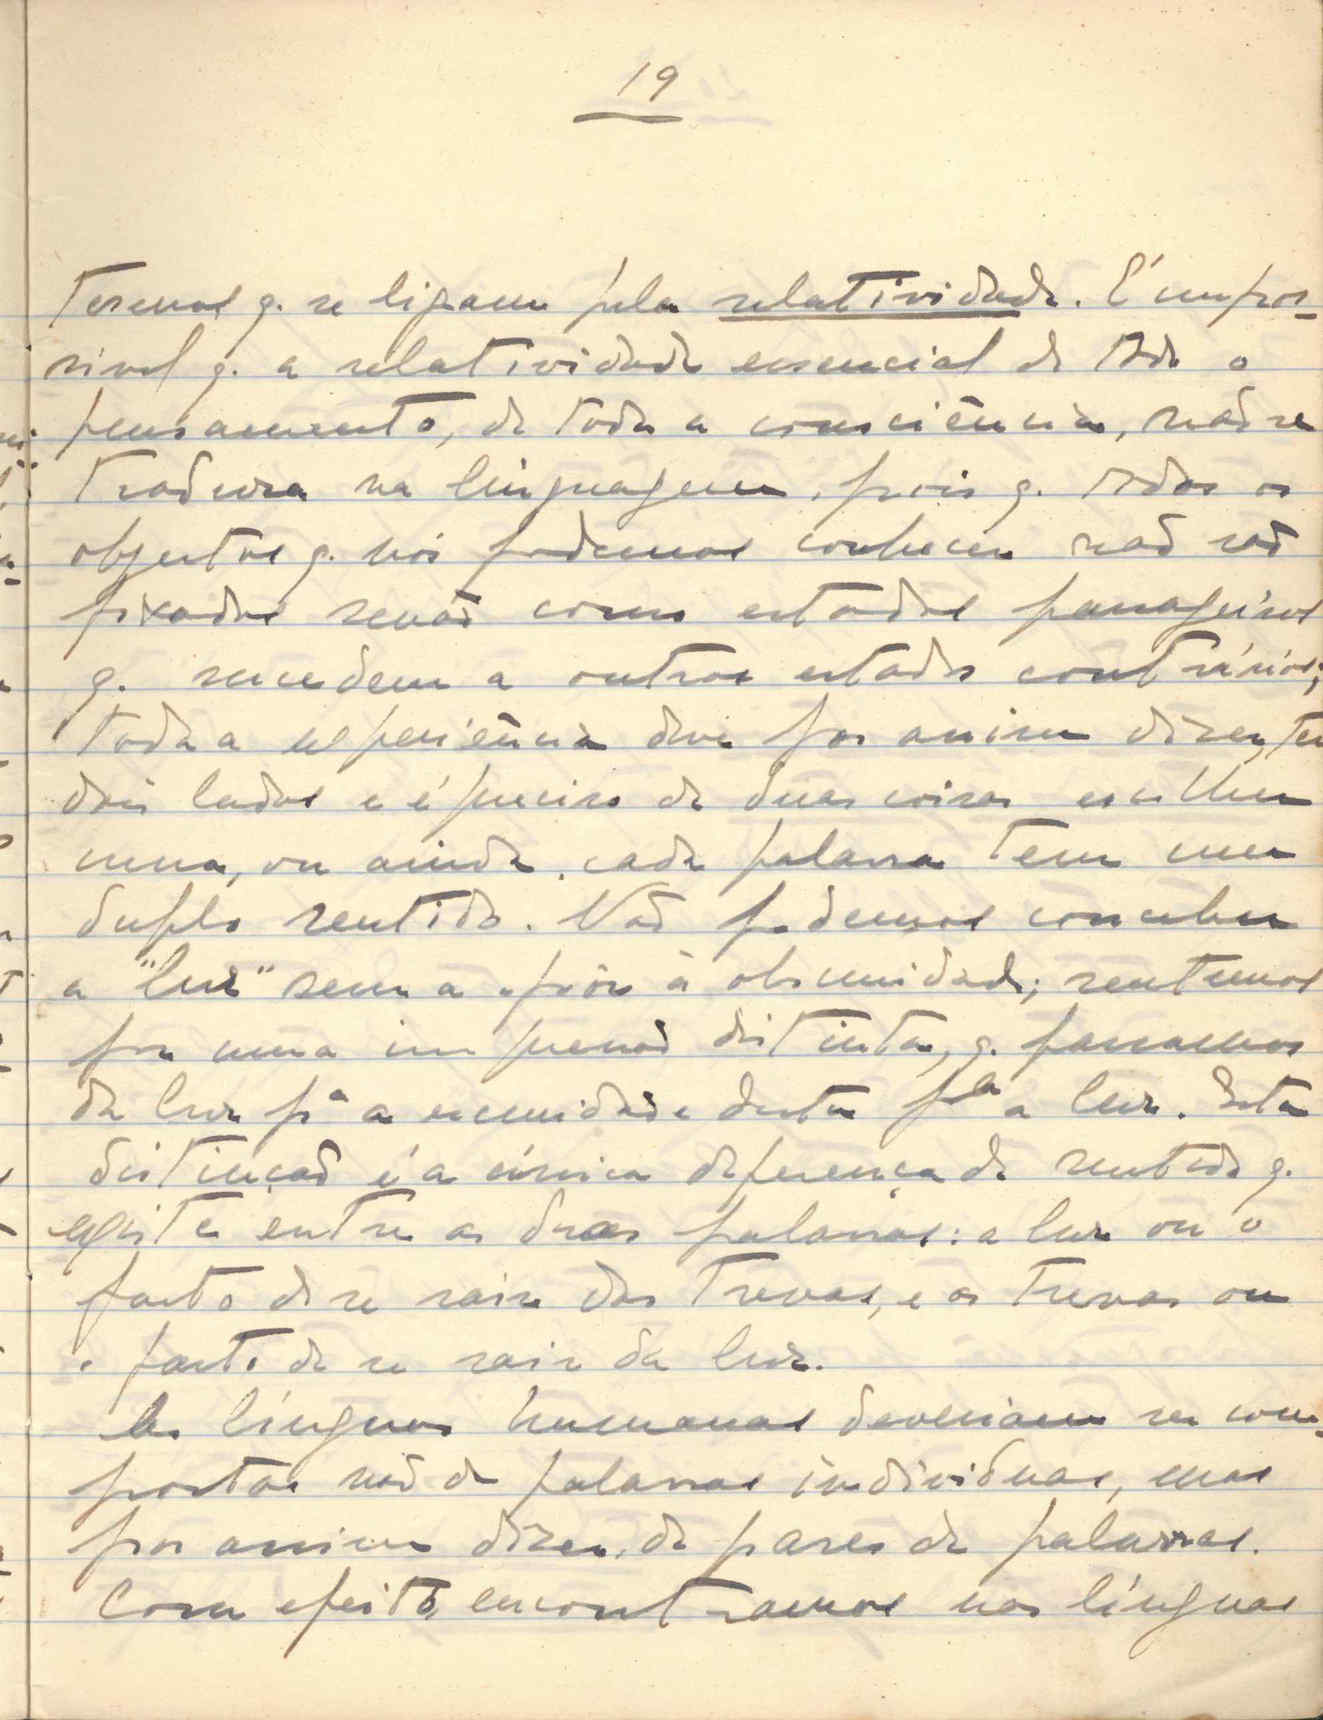 19
teremos q. se ligam pela relatividade. É impos-
sivel q. a relatividade essencial de todo o
pensamento, de toda a consciência, não se
traduza na linguagem, pois q. todos os
objectos q. nós podemos conhecer não são
fixados senão como estados passageiros
q. sucedem a outros estados contrários;
toda a experiência deve por assim dizer, ter
dois lados e é preciso de duas coisas escolher
uma, ou ainda, cada palavra tem um
duplo sentido. Não podemos conceber
a "luz" sem a opôr à obscuridade; sentimos
por uma impressão distinta, q. passamos
da luz pª a escuridão e desta pla a luz. Esta
distinção é a única diferença de sentido q.
existe entre as duas palavras: a luz ou o
facto de se sair das trevas, e as trevas ou
o facto de se sair da luz.
As línguas humanas deveriam ser com-
postas não de palavras individuas, mas
por assim dizer, de pares de palavras.
Com efeito, encontramos nas línguas